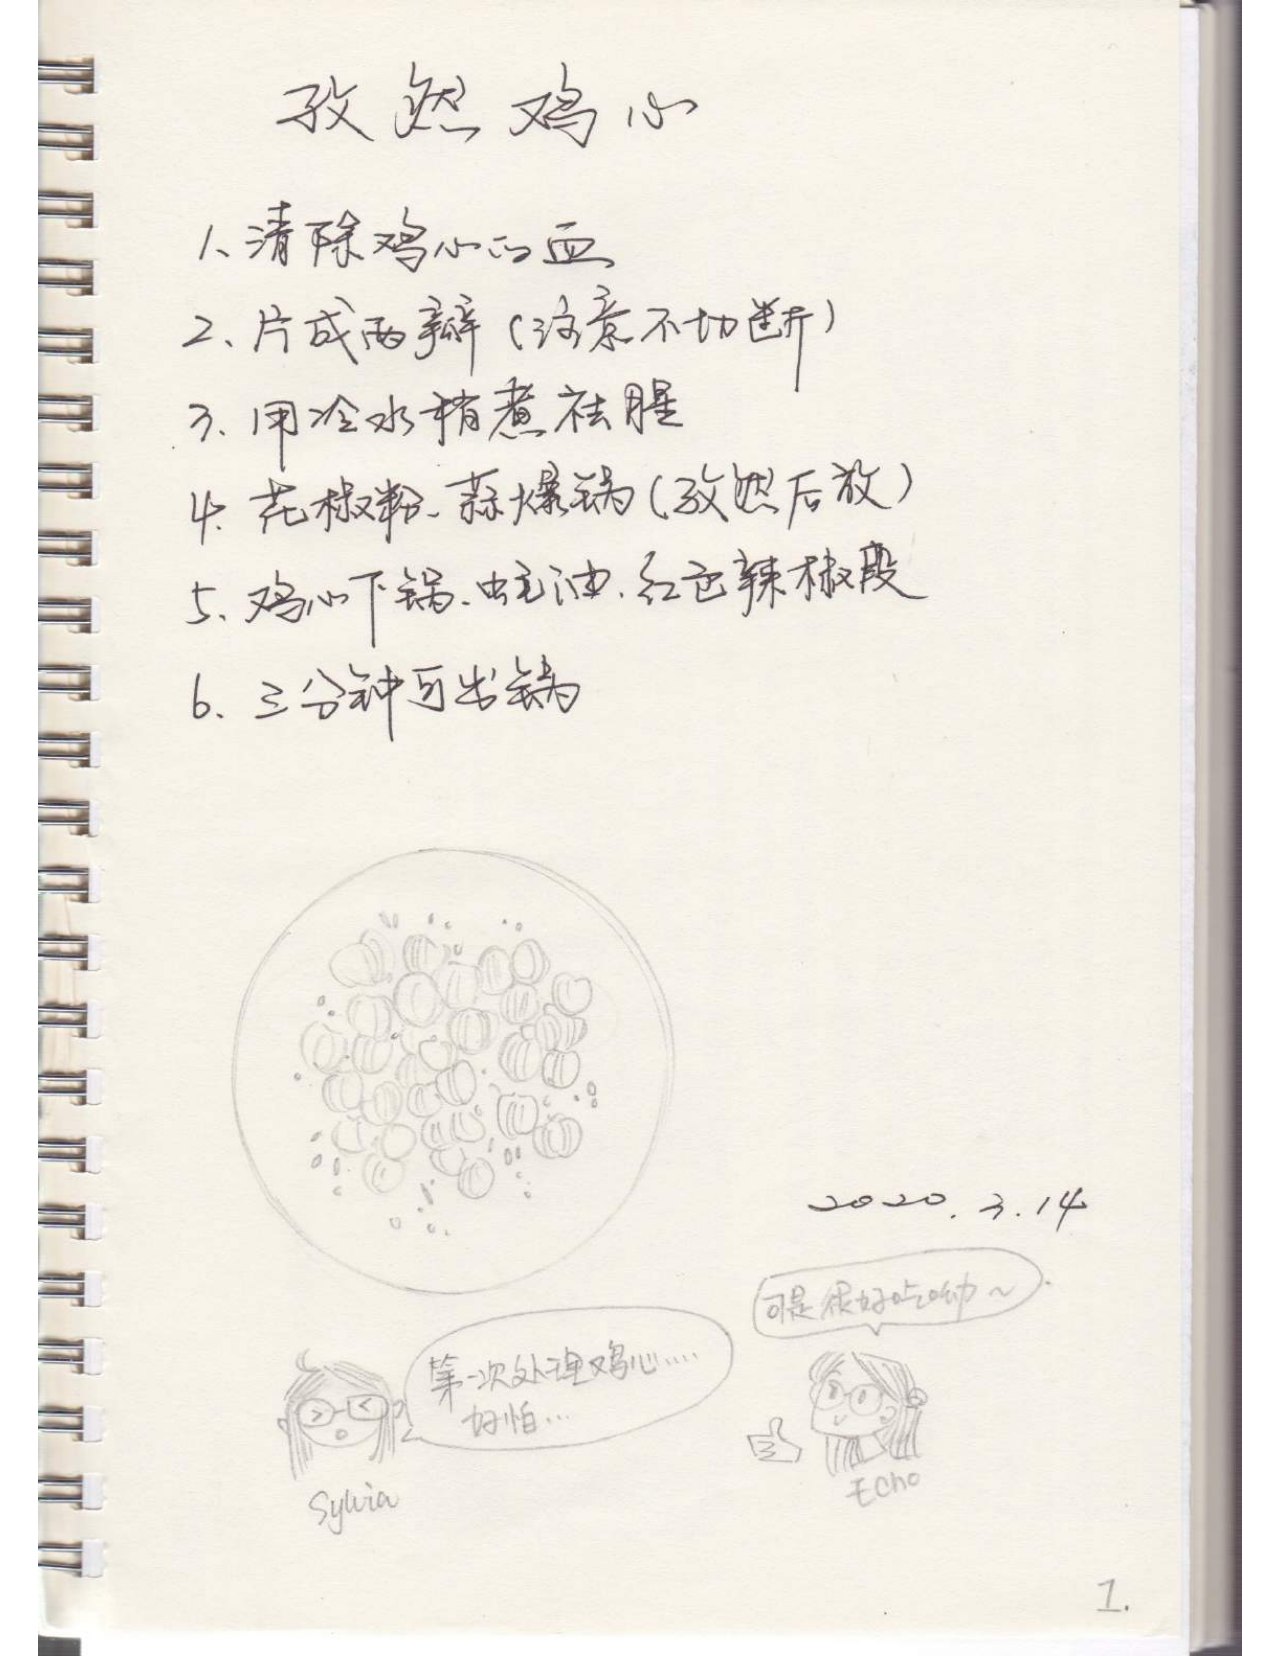 孜然鸡心
1、清除鸡心的血
2、片成两瓣（注意不切断）
3、用冷水稍煮祛腥
4、花椒粉、蒜爆锅（孜然后放）
5、鸡心下锅、蚝油、红色辣椒段
6、三分钟可出锅
2020.3.14
可是很好吃呦～
第一次处理鸡心……
好怕…
Sylvia
Echo
1.